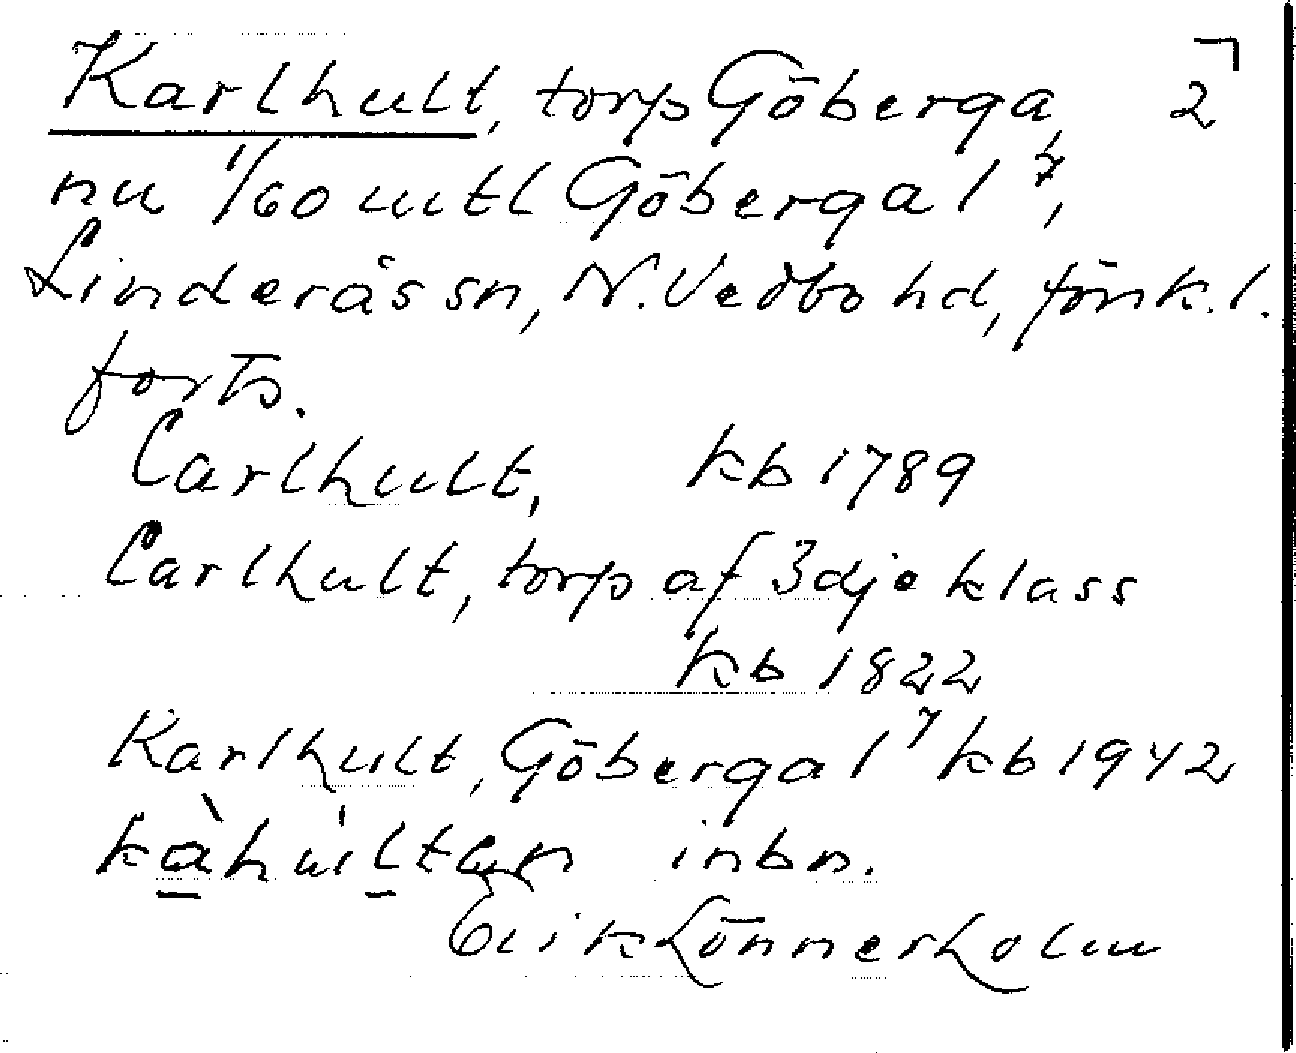 Karlhult, torp Göberga, 2
nu 1/60 mtl Göberga 1⁷,
Linderås sn, N. Vedbo hd, Jönk. l.
forts.
Carlhult, kb 1789
Carlhult, torp af 3dje klass
kb 1822
Karlhult, Göberga 1⁷ kb 1942
inbn.
Erik Lönnerholm